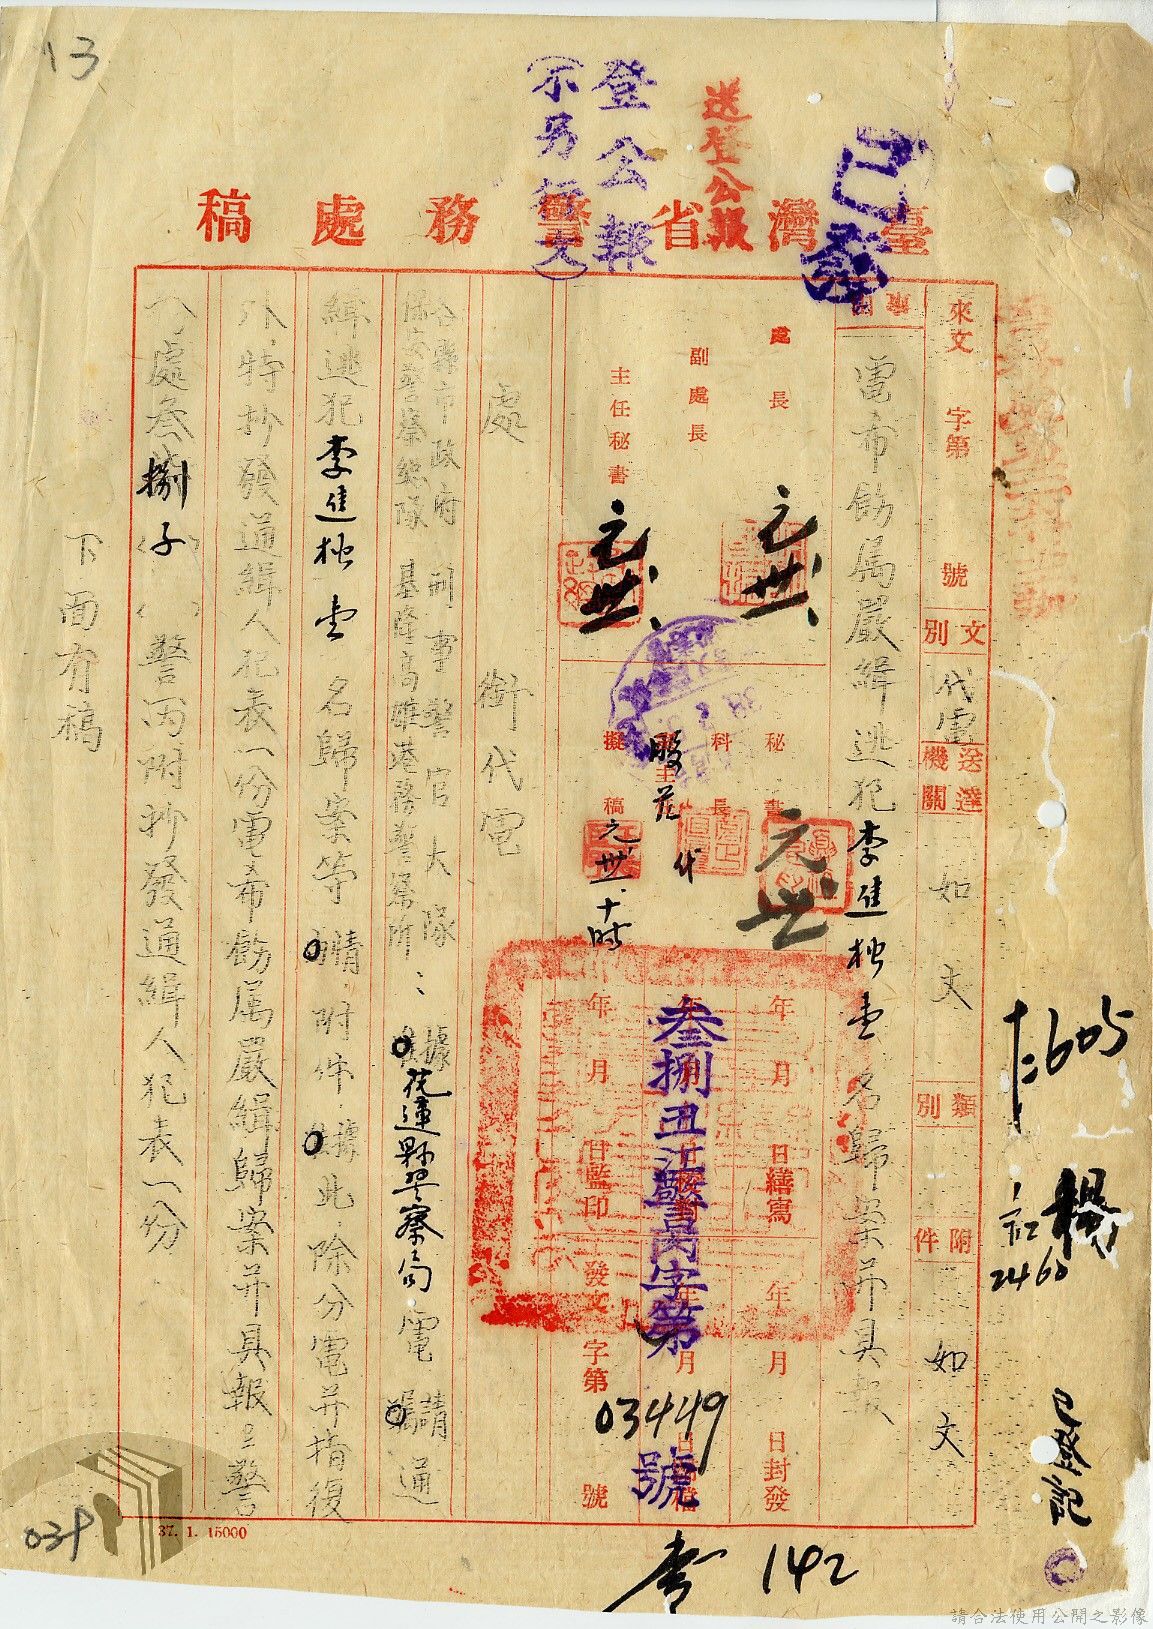 13
登公報
(不另行文)
送登公報
已發
臺灣省警務處稿
來文 字第 號
文別 代電
送達機關 如文
類別
附件 如文
事由
電希飭屬嚴緝逃犯李進松壹名歸案并具報
處長
副處長
主任秘書
秘書
科長
股主
擬稿
元卅
元卅
元卅
元卅十時
代
年 月 日繕寫
年 月 日封發
年 月 日監印
發文 字第 號
叁捌丑江警丙字第
03449
號
處銜代電
各縣市政府 刑事警官大隊
保安警察總隊 基隆高雄港務警察所
據花蓮縣警察局電請通
緝逃犯李進松壹名歸案等情附件據此除分電并指復
外特抄發通緝人犯表一份電希飭屬嚴緝歸案并具報
警
處叁捌子 警丙附抄發通緝人犯表一份
下面有稿
605
楊
2460
已登記
142
039
37. 1. 15000
請合法使用公開之影像